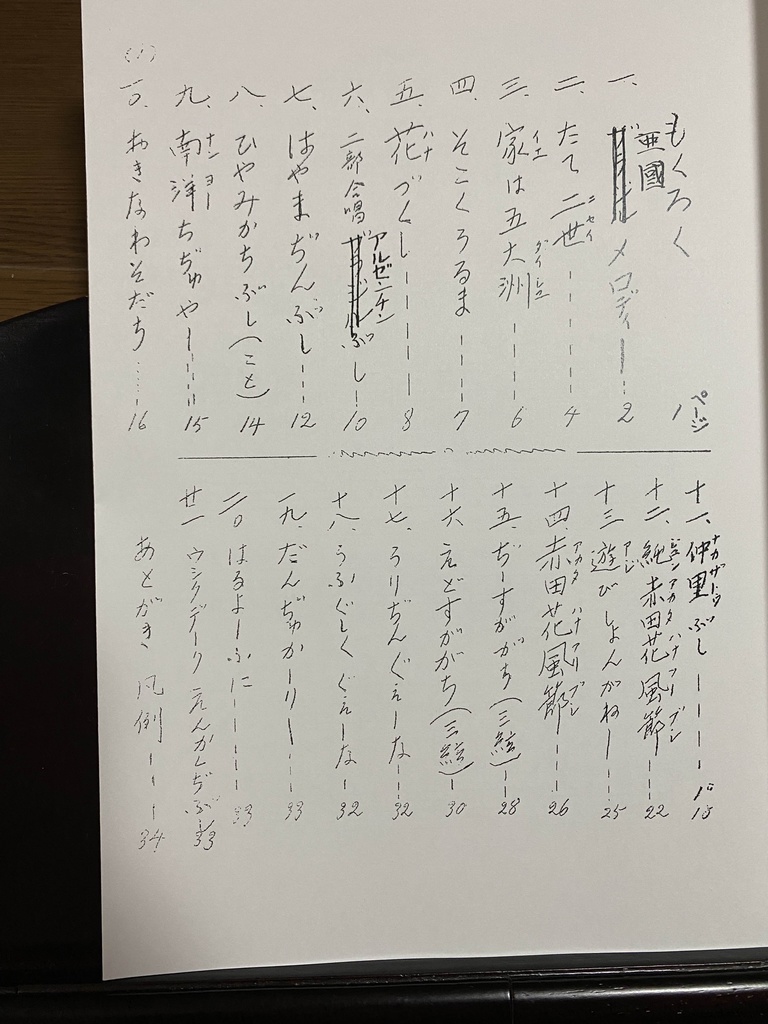 もくろく
ページ
1
一、亜國メロディー---2
二、たて二世ニセイ-----4
三、家イエは五大洲ダイシュー----6
四、そこくろるま---7
五、花ハナづくし-----8
六、二部合唱アルゼンチンぶし--10
七、はやまぢんぶし---12
八、ひやみかちぶし(こと)14
九、南洋ナンヨーちぢゅやー----15
一〇、おきなわそだち……16
十一、仲里ナカザトゥぶし-----18
十二、赤田花風節アカタハナフリブシ---22
十三、遊アシびしょんがねー---25
十四、赤田花風節アカタハナフリブシ---26
十五、ぢーすががち(三絃)--28
十六、えどすががち(三絃)--30
十七、うりぢんぐぇーな---32
十八、うふぐしくぐぇーな--32
十九、だんぢゅかーりー---33
二〇、はるよーふに-----33
廿一 ウシクデーク えんかしぢぶ-33
あとがき 凡例---34